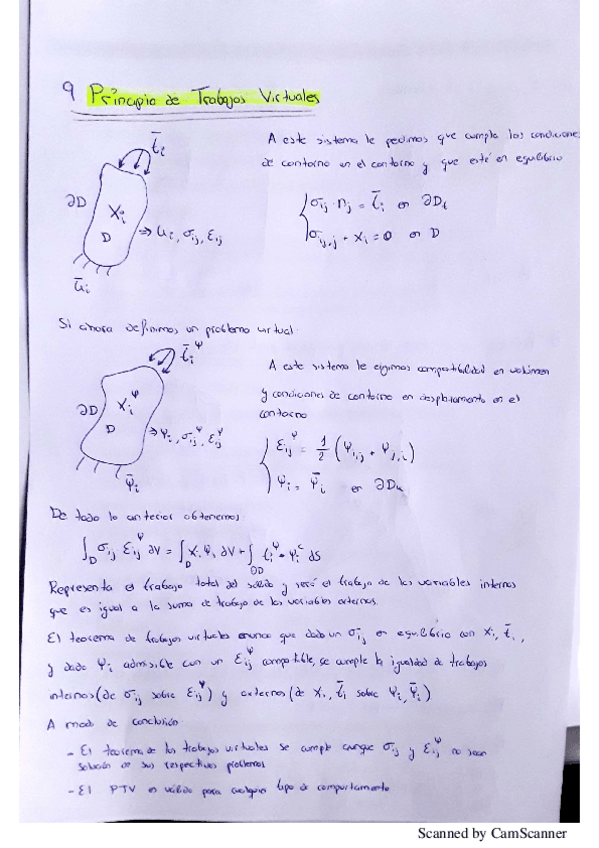 9 Principio de Trabajos Virtuales
A este sistema le pedimos que cumpla las condiciones
de contorno en el contorno y que esté en equilibrio
t̄i
∂D
Xi
D
⇒ ui, σij, εij
ūi
σij · nj = t̄i en ∂Dt
σij,j + Xi = 0 en D
Si ahora definimos un problema virtual
t̄i^ψ
A este sistema le exigimos compatibilidad en volumen
y condiciones de contorno en desplazamiento en el
contorno
∂D
Xi^ψ
D
⇒ ψi, σij^ψ, εij^ψ
ψ̄i
εij^ψ = 1/2 (ψi,j + ψj,i)
ψi = ψ̄i en ∂Du
De todo lo anterior obtenemos
∫D σij εij^ψ dV = ∫D Xi ψi dV + ∫∂D ti^c ψi^c dS
Representa el trabajo total del sólido y será el trabajo de las variables internas
que es igual a la suma de trabajo de las variables externas.
El teorema de trabajos virtuales enuncia que dado un σij en equilibrio con Xi, t̄i,
y dado ψi admisible con un εij^ψ compatible, se cumple la igualdad de trabajos
internos (de σij sobre εij^ψ) y externos (de Xi, t̄i sobre ψi, ψ̄i)
A modo de conclusión
- El teorema de los trabajos virtuales se cumple aunque σij y εij^ψ no sean
solución de sus respectivos problemas
- El PTV es válido para cualquier tipo de comportamiento
Scanned by CamScanner